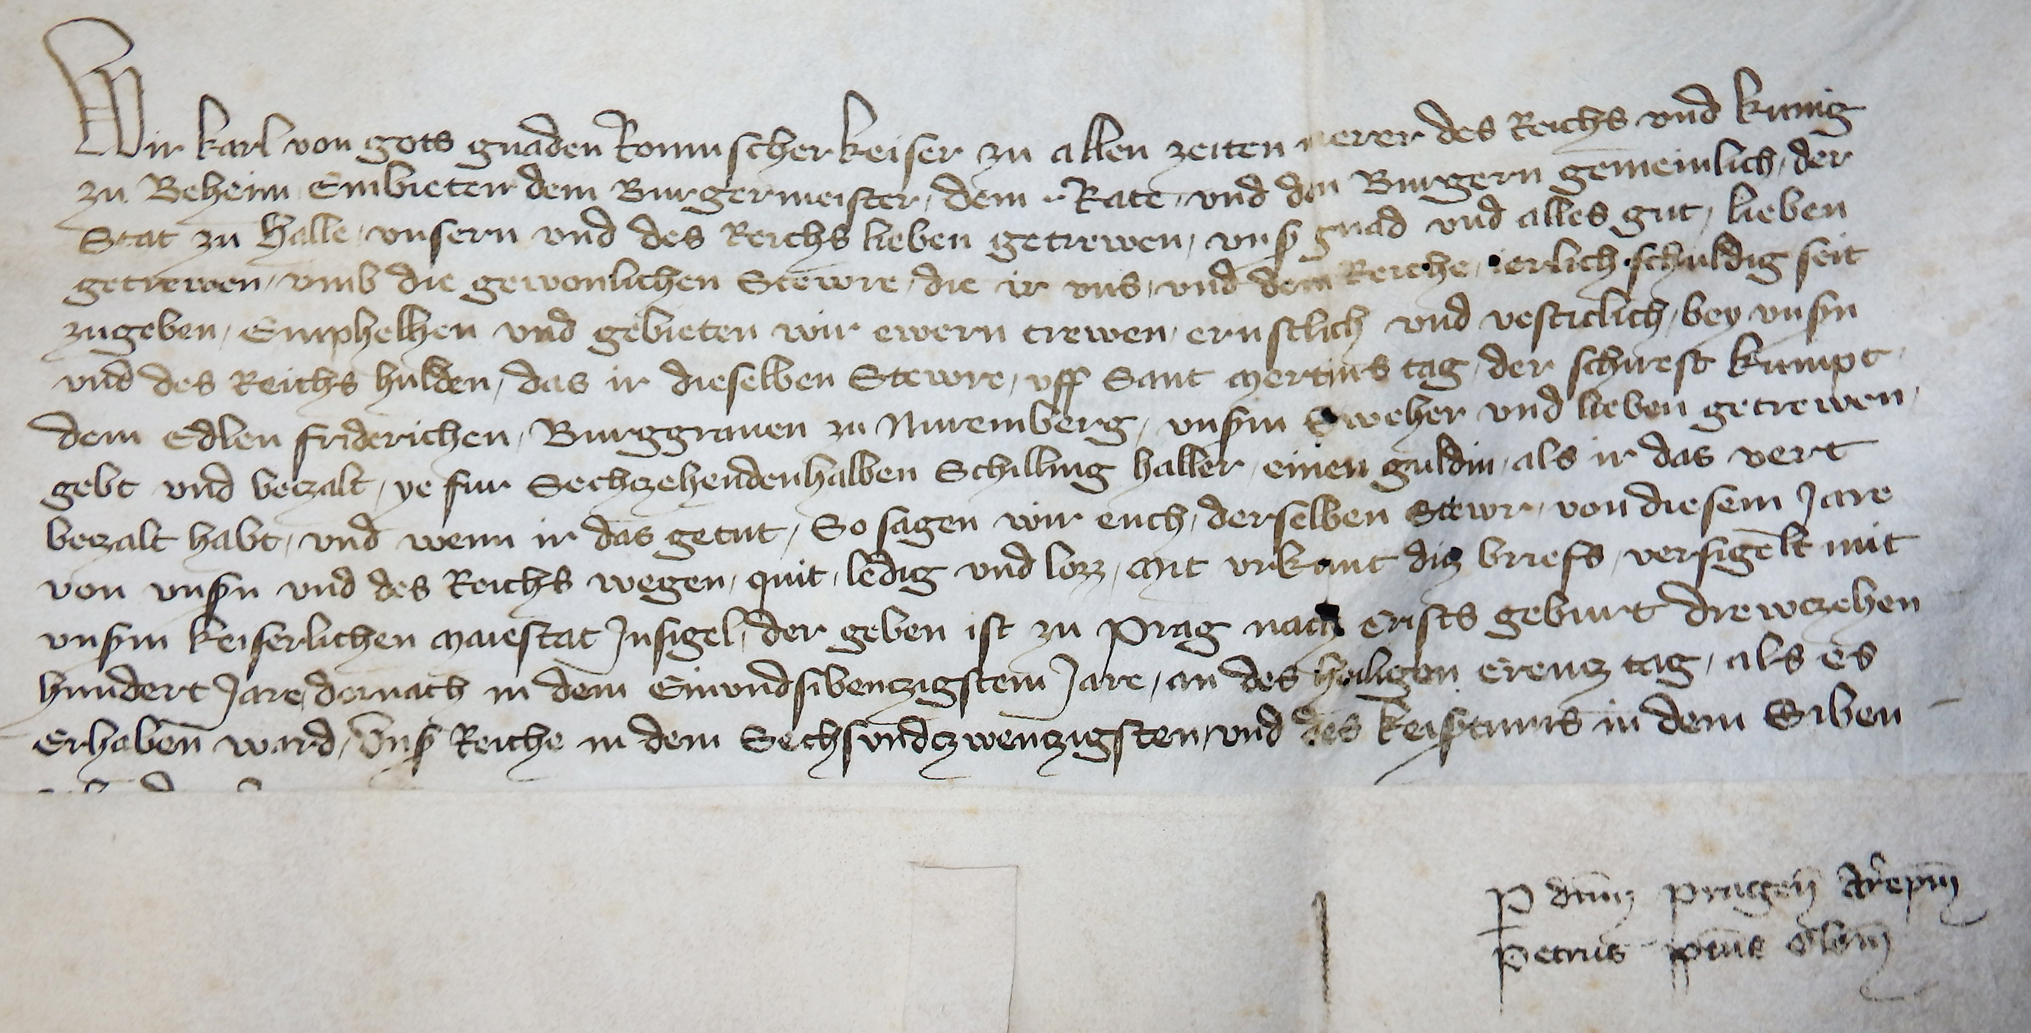 Wir karl von gots gnaden Romischer keiser zu allen zeiten merer des Reichs und kunig
zu Beheim Embieten dem Burgermeister, dem Rate, und den Burgern gemeinlich, der
Stat zu Halle, unsern und des Reichs lieben getrewen, uns(er) gnad und alles gut, lieben
getrewen, umb die gewonlichen Stewre, die ir uns, und dem Reiche, ierlich schuldig seit
zugeben, Emphelhen und gebieten wir ewern trewen, ernstlich und vesticlich, bey unsn
und des Reichs hulden, das ir dieselben Stewre, uff Sant mertins tag, der schirest kumpt,
dem Edlen friderichen, Burggraven zu Nuremberg, unsm Sweher und lieben getrewen,
gebt und beczalt, ye fur Sechczehendenhalben Schilling haller, einen guldin, als ir das vert
beczalt habt, und wenn ir das getut, So sagen wir euch, derselben Stewr, von diesem Jare
von unsn und des Reichs wegen, quit, ledig und lozz, Mit urkunt dicz briefs, versigelt mit
unsm keiserlichen Maiestat Insigel, der geben ist zu Prag nach Crists geburt drewczehen
hundert Jare, dornach in dem Einundsibenczigstem Jare, an des heiligen Creucz tag, als es
Erhaben ward, Uns Reiche in dem Sechsundczwenczigsten, und des keistums in dem Siben
P dnm Pragen Arepm
Petrus